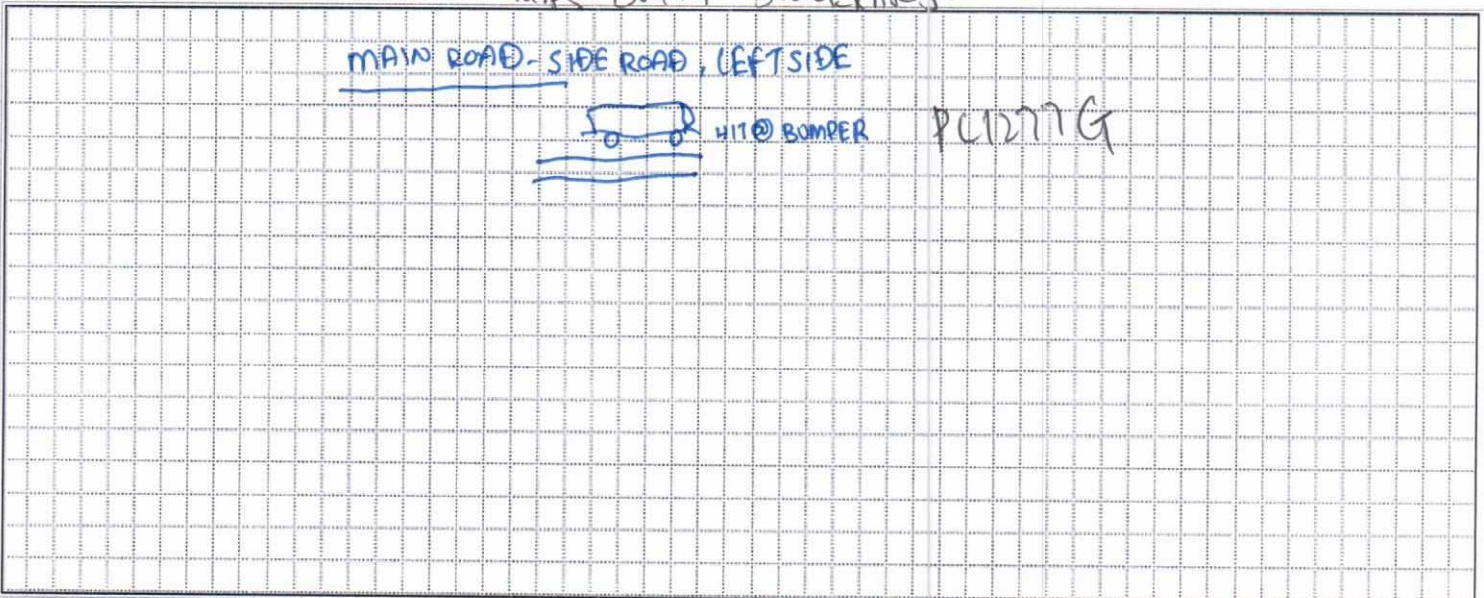 MAIN ROAD - SIDE ROAD, LEFT SIDE
HIT @ BUMPER PC1277G